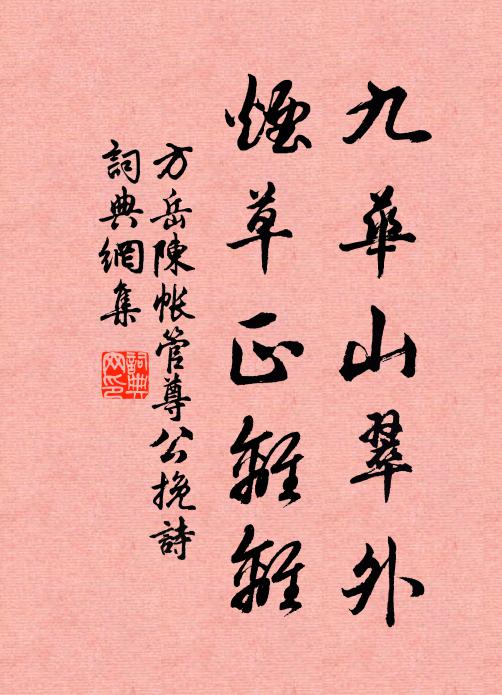 九華山翠外
煙草正離離
方岳陳帐管尊公挽詩
詞典網集
詞典
网印